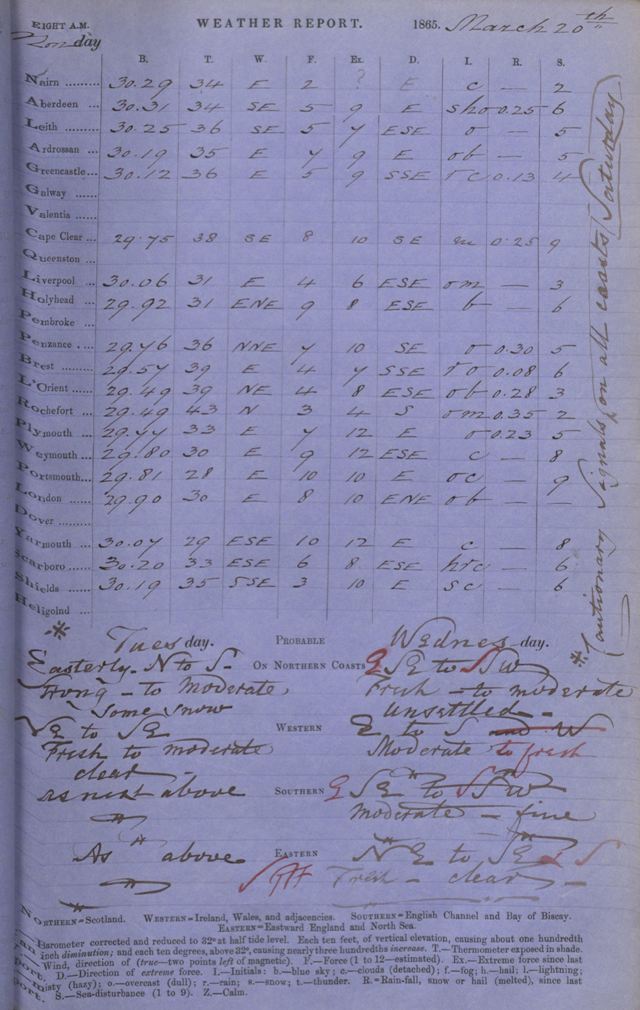 EIGHT A.M. WEATHER REPORT. 1865. March 20th
Monday
B. T. W. F. Ex. D. I. R. S.
Nairn ......... 30.29 34 E 2 ? E c — 2
Aberdeen ... 30.31 34 SE 5 9 E sho 0.25 6
Leith ......... 30.25 36 SE 5 7 ESE o — 5
Ardrossan ... 30.19 35 E 7 9 E ob — 5
Greencastle... 30.12 36 E 5 9 SSE rc 0.13 4
Galway ......
Valentia ......
Cape Clear ... 29.75 38 SE 8 10 SE m 0.25 9
Queenston ...
Liverpool ... 30.06 31 E 4 6 ESE om — 3
Holyhead ... 29.92 31 ENE 9 8 ESE b — 6
Pembroke ...
Penzance ... 29.76 36 NNE 7 10 SE o 0.30 5
Brest ......... 29.57 39 E 4 7 SSE ro 0.08 6
L'Orient ... 29.49 39 NE 4 8 ESE ob 0.28 3
Rochefort ... 29.49 43 N 3 4 S om 0.35 2
Plymouth ... 29.77 33 E 7 12 E o 0.23 5
Weymouth ... 29.80 30 E 9 12 ESE c — 8
Portsmouth... 29.81 28 E 10 10 E oc — 9
London ...... 29.90 30 E 8 10 ENE ob — —
Dover .........
Yarmouth ... 30.07 29 ESE 10 12 E c — 8
Scarboro ... 30.20 33 ESE 6 8 ESE hrc — 6
Shields ...... 30.19 35 SSE 3 10 E sc — 6
Heligolnd ...
* Cautionary Signals on all coasts (Saturday)
* Tuesday. PROBABLE Wednesday.
Easterly. N to S— ON NORTHERN COASTS ESE to SSW
Strong — to moderate Fresh — to moderate
Some snow unsettled —
NE to SE WESTERN E to S and W
Fresh to moderate Moderate to fresh
clear
as next above SOUTHERN ESE to SSW
moderate — fine
As above EASTERN NE to SE & S
Stff Fresh — clear —
NORTHERN=Scotland. WESTERN=Ireland, Wales, and adjacencies. SOUTHERN=English Channel and Bay of Biscay.
EASTERN=Eastward England and North Sea.
Barometer corrected and reduced to 32° at half tide level. Each ten feet, of vertical elevation, causing about one hundredth
inch diminution; and each ten degrees, above 32°, causing nearly three hundredths increase. T.—Thermometer exposed in shade.
Wind, direction of (true—two points left of magnetic). F.—Force (1 to 12—estimated). Ex.—Extreme force since last
port. D.—Direction of extreme force. I.—Initials: b.—blue sky; c.—clouds (detached); f.—fog; h.—hail; l.—lightning;
misty (hazy); o.—overcast (dull); r.—rain; s.—snow; t.—thunder. R.—Rain-fall, snow or hail (melted), since last
port. S.—Sea-disturbance (1 to 9). Z.—Calm.